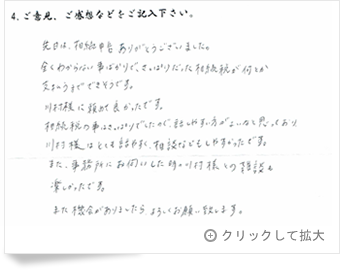 4. ご意見、ご感想などをご記入下さい。
先日は、相続申告ありがとうございました。
全くわからない事ばかりで、さっぱりだった相続税が何とか
支払うまでできそうです。
川村様に頼めて良かったです。
相続税の事はさっぱりでしたので、話しやすい方がよいなと思っており
川村様はとても話やすく、相談などもしやすかったです。
また、事務所にお伺いした時の川村様との雑談も
楽しかったです。
また機会がありましたらよろしくお願い致します。
クリックして拡大